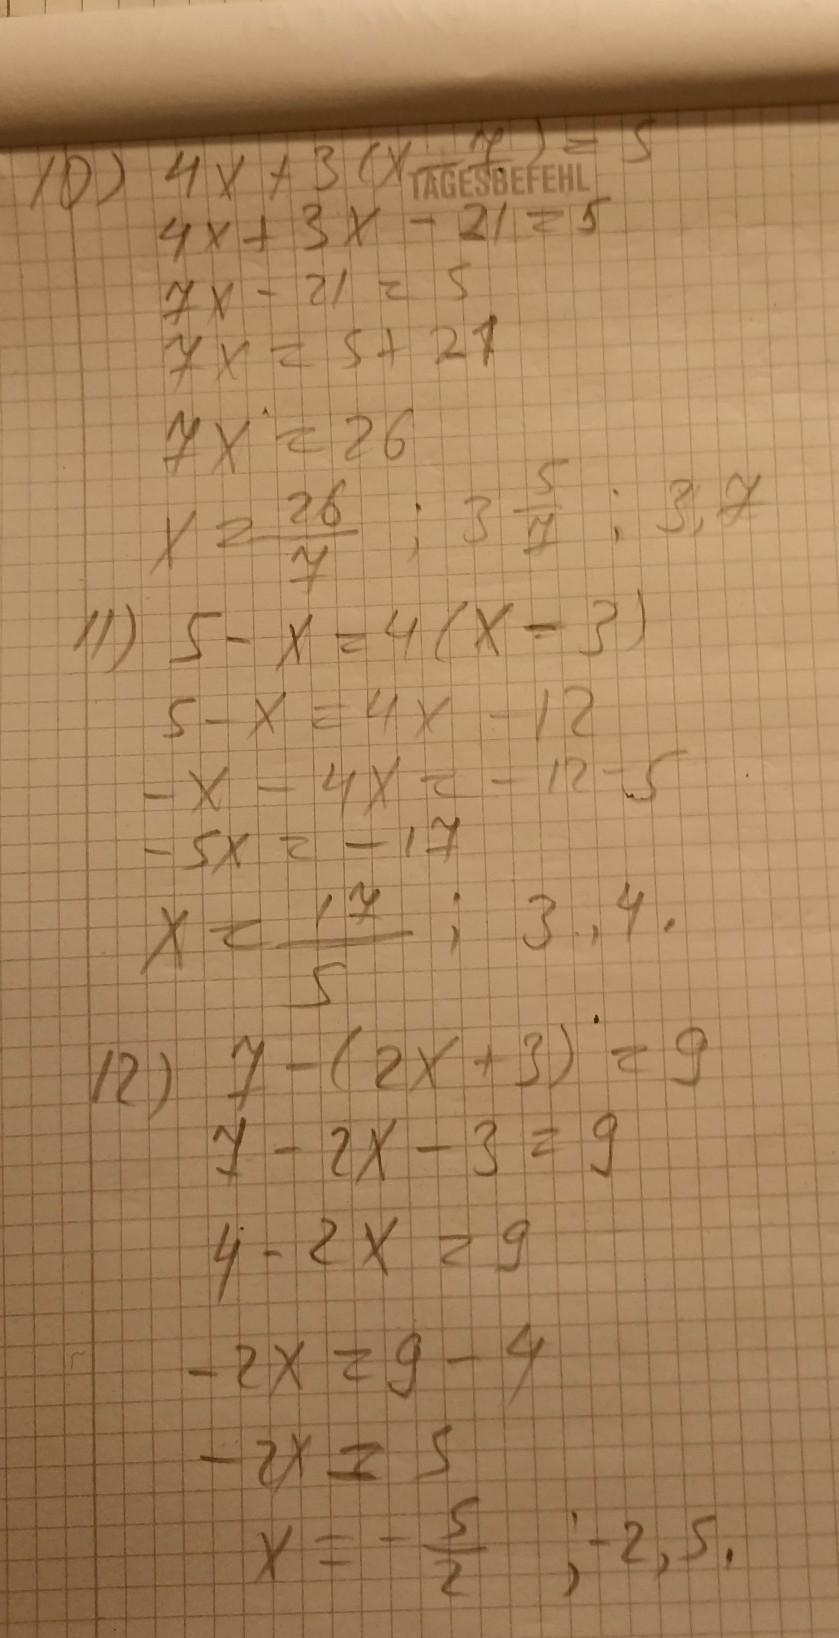 10) 4x + 3(x - 7) = 5
TAGESBEFEHL
4x + 3x - 21 = 5
7x - 21 = 5
7x = 5 + 21
7x = 26
x = 26/7 ; 3 5/7 ; 3,7
11) 5 - x = 4(x - 3)
5 - x = 4x - 12
-x - 4x = -12 - 5
-5x = -17
x = 17/5 ; 3,4.
12) 7 - (2x + 3) = 9
7 - 2x - 3 = 9
4 - 2x = 9
-2x = 9 - 4
-2x = 5
x = - 5/2 ; -2,5.